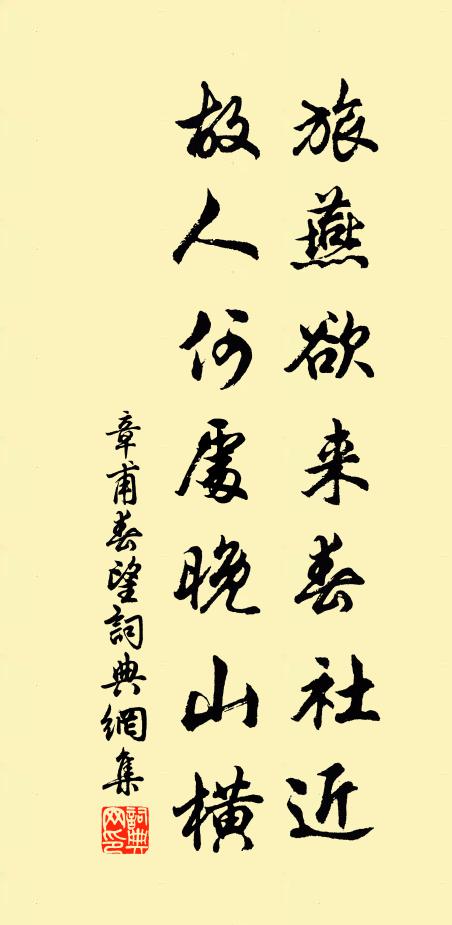 旅燕欲来春社近
故人何處晚山橫
章甫春望詞典網集
詞典網印